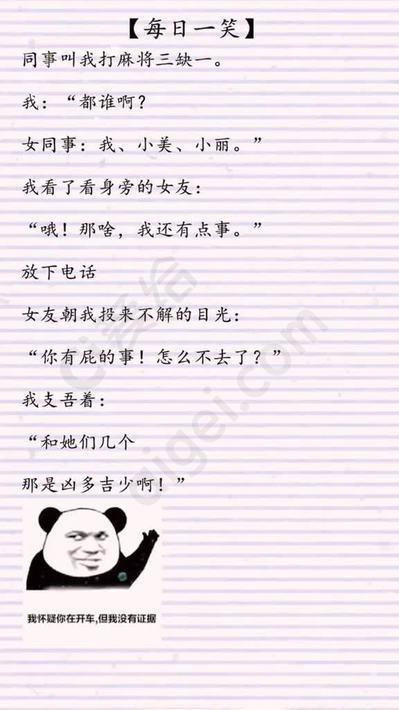 【每日一笑】
同事叫我打麻将三缺一。
我：“都谁啊？
女同事：我、小美、小丽。”
我看了看身旁的女友：
“哦！那啥，我还有点事。”
放下电话
女友朝我投来不解的目光：
“你有屁的事！怎么不去了？”
我支吾着：
“和她们几个
那是凶多吉少啊！”
我怀疑你在开车,但我没有证据
爱给
aigei.com